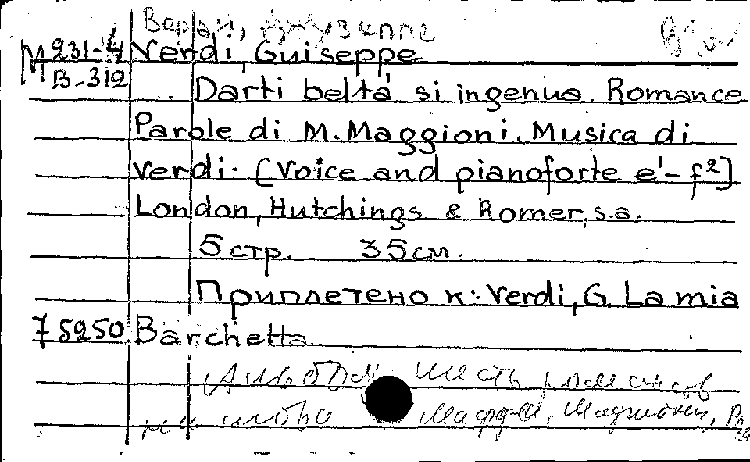 Верди, Джузеппе
М 231-4 Verdi, Guiseppe
В-312
Darti belta si ingenua. Romance
Parole di M. Maggioni. Musica di
Verdi. [Voice and pianoforte e¹- f²]
London, Hutchings & Romer, s.a.
5 стр. 35 см.
Приплетено к: Verdi, G. La mia
75250 Barchetta
шесть романсов
на слова Маффеи, Маджиони,